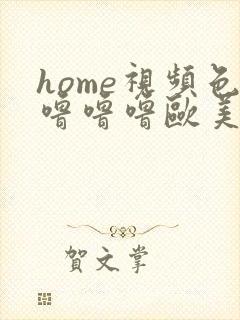 home視頻色
噜噜噜歐美
賀文掌